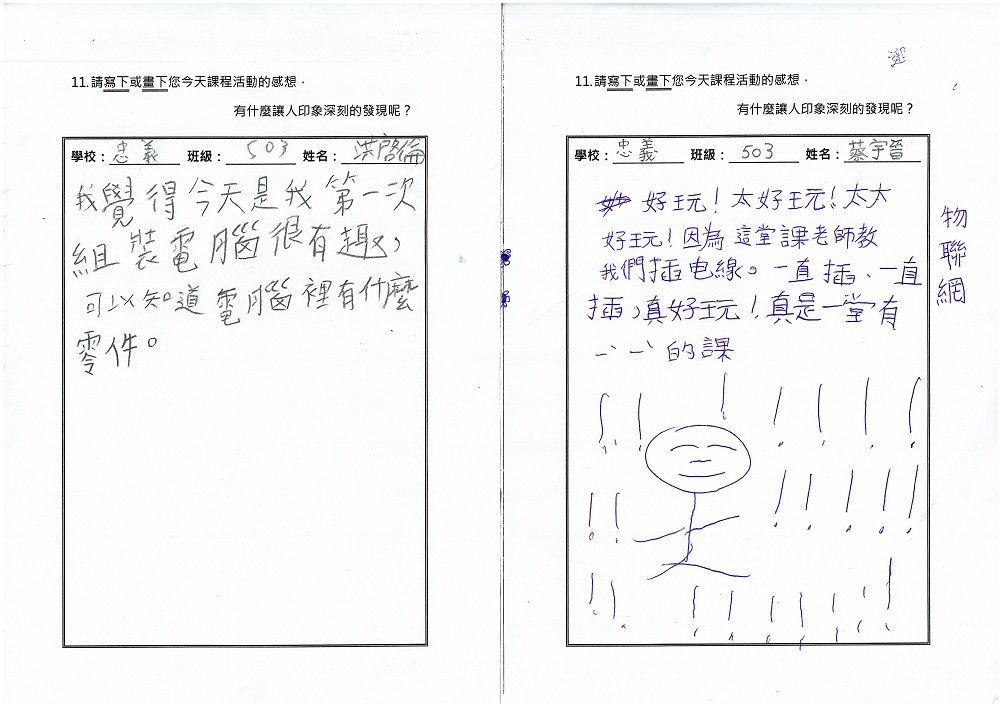 11.請寫下或畫下您今天課程活動的感想，
有什麼讓人印象深刻的發現呢？
學校：忠義 班級：503 姓名：洪啓倫
我覺得今天是我第一次
組裝電腦很有趣，
可以知道電腦裡有什麼
零件。
選
11.請寫下或畫下您今天課程活動的感想，
有什麼讓人印象深刻的發現呢？
學校：忠義 班級：503 姓名：蔡宇晉
好玩！太好玩！太太
好玩！因為這堂課老師教
我們插电線。一直插、一直
插，真好玩！真是一堂有
的課
物聯網